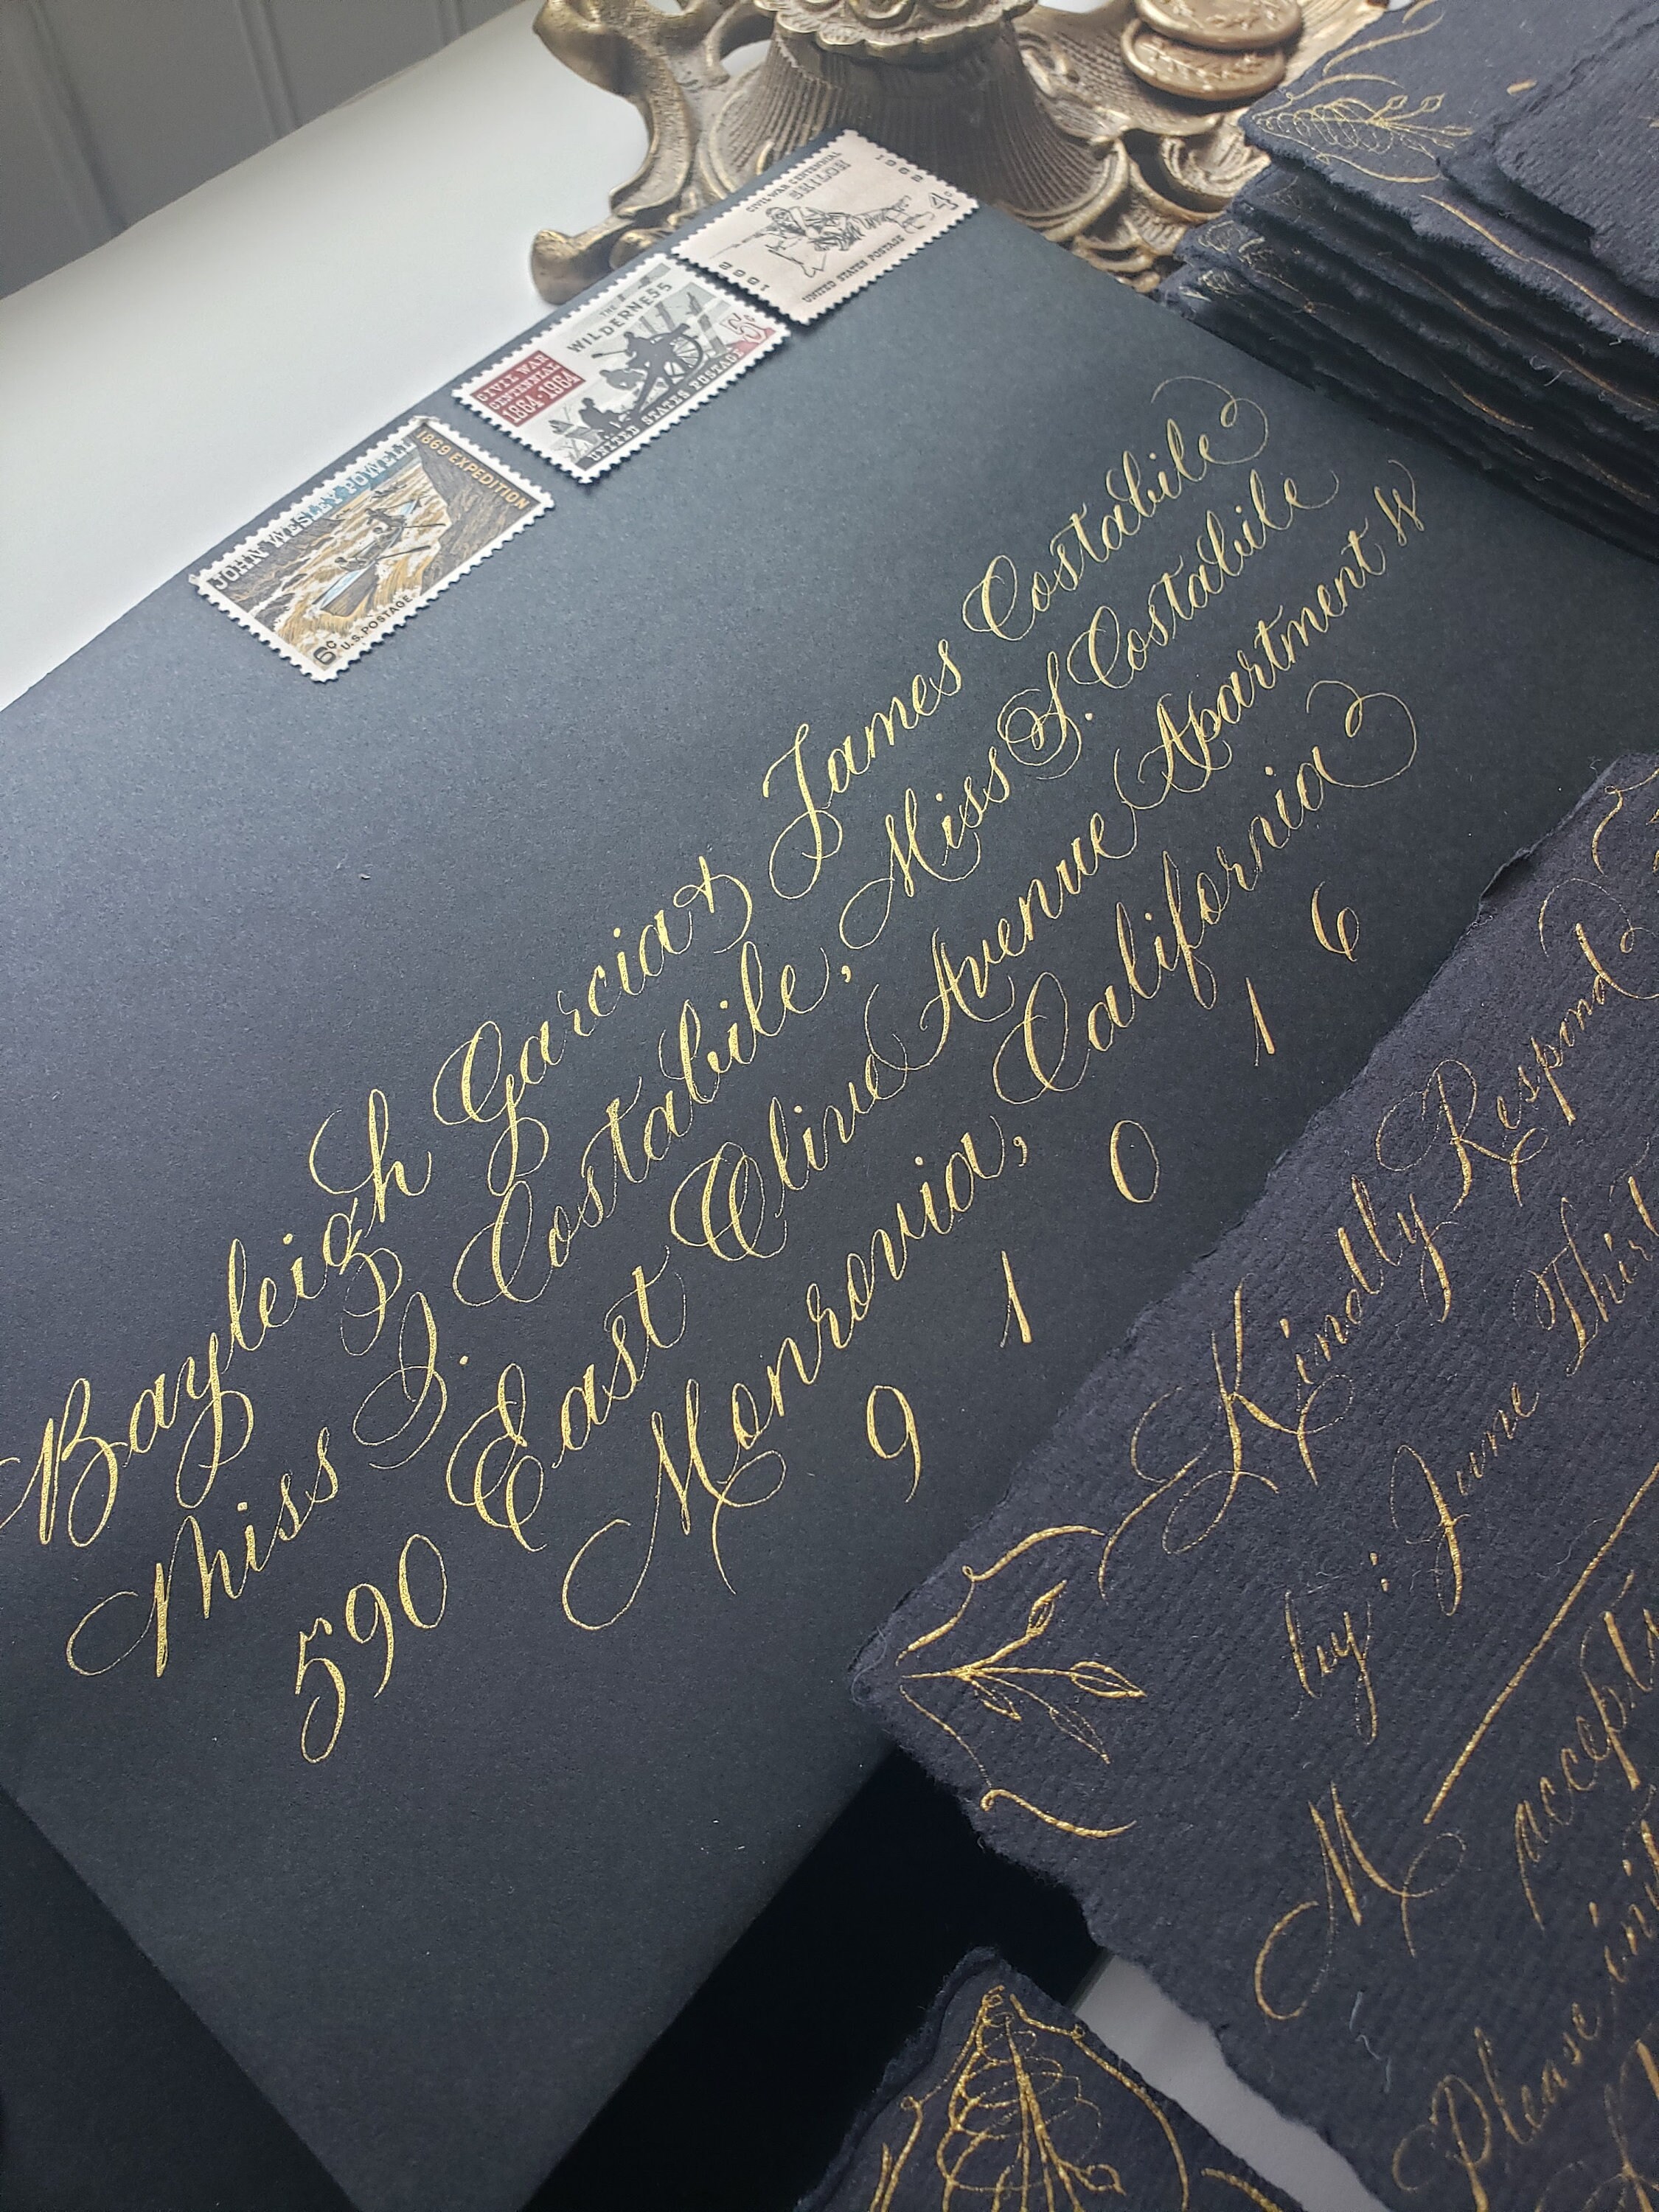 JOHN WESLEY POWELL
1869 EXPEDITION
6c U.S. POSTAGE
CIVIL WAR
CENTENNIAL
1864-1964
THE
WILDERNESS
5c
UNITED STATES POSTAGE
CIVIL WAR CENTENNIAL
SHILOH
1862
1962
4c
UNITED STATES POSTAGE
Bayleigh Garcia & James Costabile
Miss J. Costabile, Miss S. Costabile
590 East Olive Avenue Apartment
Monrovia, California
9 1 0 1 6
Kindly Respond
by: June
M
accepts
Please